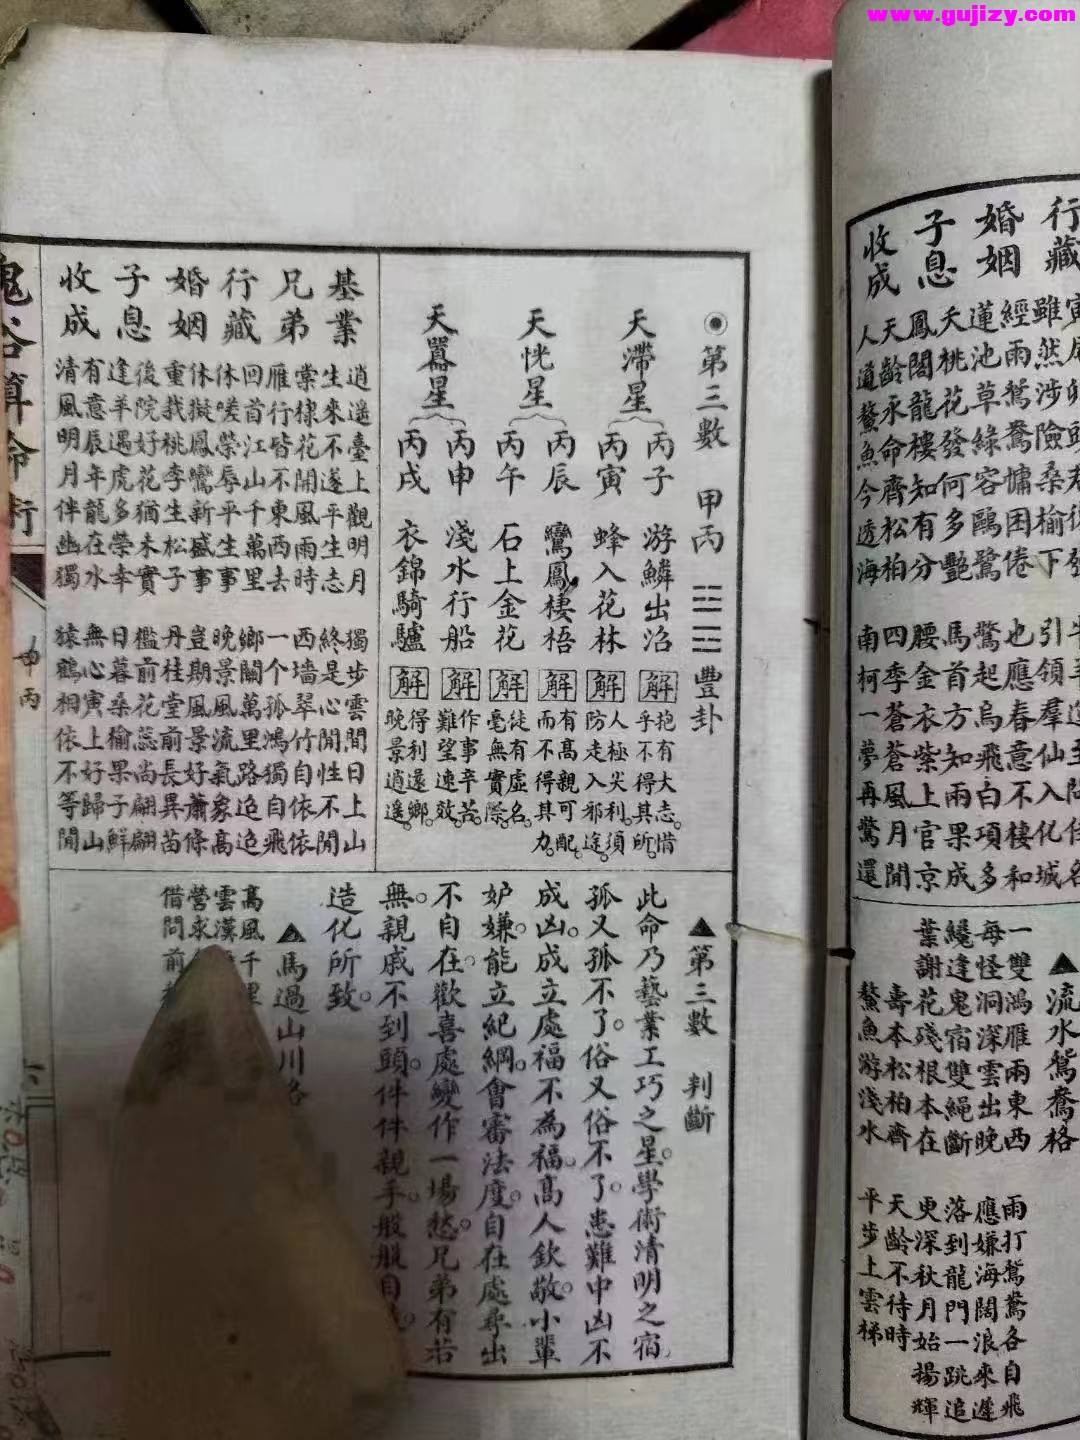 www.gujizy.com
行藏
婚姻
子息
收成
雖然涉險桑榆下
引領羣仙入化城
經雨鴛鴦慵困倦
也應春意不棲和
蓮池草綠容鷗鷺
驚起烏飛白項多
夭桃花發何多艷
馬首方知兩果成
鳳閣龍樓知有分
腰金衣紫上官京
天齡永命齊松柏
四季蒼蒼風月閒
人道鰲魚今透海
南柯一夢再驚還
▲流水鴛鴦格
一雙鴻雁兩東西
雨打鴛鴦各自飛
每怪洞深雲出晚
應嫌海闊浪來遲
纔逢鬼宿雙繩斷
落到龍門一跳追
葉謝花殘根本在
更深秋月始揚輝
壽本松柏齊
天齡不待時
鰲魚游淺水
平步上雲梯
◉第三數 甲丙 豐卦
天滯星
丙子 游鱗出沼 解 抱有大志。惜乎不得其所。
丙寅 蜂入花林 解 人極尖利。須防走入邪途。
天恍星
丙辰 鸞鳳棲梧 解 有高親可配。而不得其力。
丙午 石上金花 解 徒有虛名。毫無實際。
天嚣星
丙申 淺水行船 解 作事辛苦。難望速效。
丙戌 衣錦騎驢 解 得利還鄉。晚景逍遙。
▲第三數 判斷
此命乃藝業工巧之星。學術清明之宿。
孤又孤不了。俗又俗不了。患難中凶不
成凶。成立處福不為福。高人欽敬。小輩
妒嫌。能立紀綱。會審法度。自在處尋出
不自在。歡喜處變作一場愁。兄弟有若
無。親戚不到頭。件件親手。般般自
造化所致。
▲馬過山川格
高風千里
雲漢
營求
借問前
基業
兄弟
行藏
婚姻
子息
收成
逍遙臺上觀明月
獨步雲間日上山
生來不遂平生志
終是心閒性不閒
棠棣花開風雨時
西墻翠竹自依依
雁行皆不東西去
一个孤鴻獨自飛
回首江山千萬里
鄉關萬里路迢迢
休嗟榮辱平生事
晚景風流氣象高
休擬鳳鸞新盛事
豈期風景好蕭條
重栽桃李生松子
丹桂堂前長異苗
後院好花猶未實
檻前花蕊尚翩翩
逢羊遇虎多榮幸
日暮桑榆果子鮮
有意辰年龍在水
無心寅上好歸山
清風明月伴幽獨
猿鶴相依不等閒
鬼谷算命術
甲丙